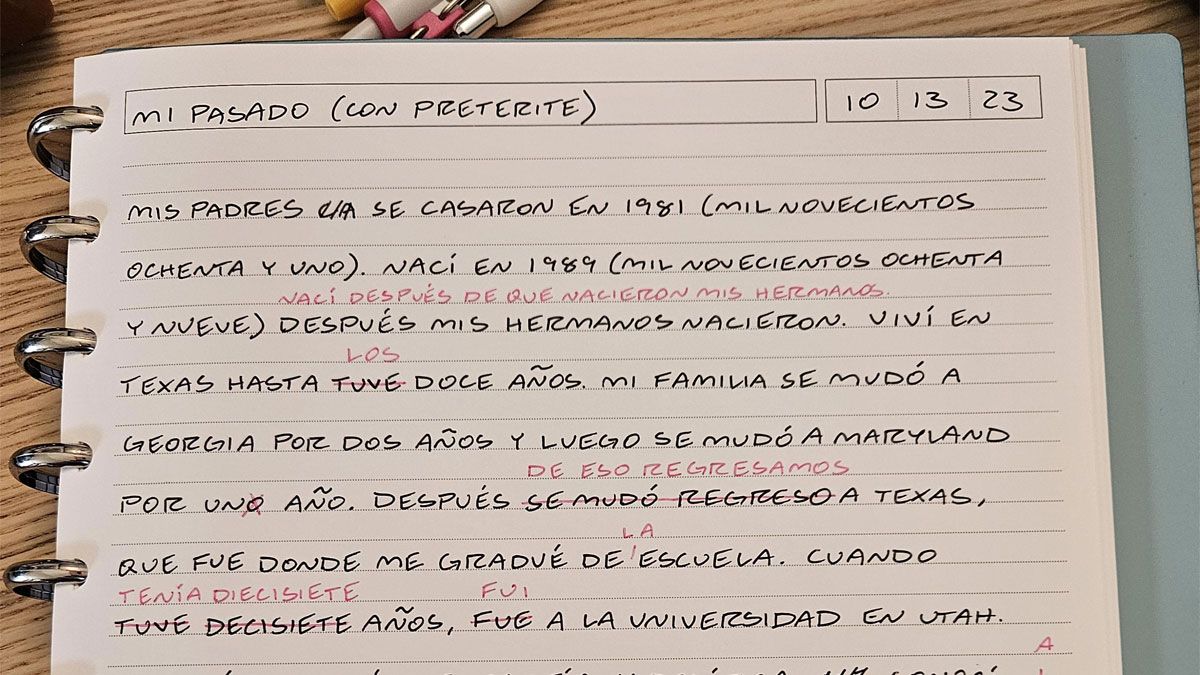 MI PASADO (CON PRETERITE)
10 13 23
MIS PADRES SE CASARON EN 1981 (MIL NOVECIENTOS
OCHENTA Y UNO). NACÍ EN 1989 (MIL NOVECIENTOS OCHENTA
NACÍ DESPUÉS DE QUE NACIERON MIS HERMANOS.
Y NUEVE) DESPUÉS MIS HERMANOS NACIERON. VIVÍ EN
LOS
TEXAS HASTA TUVE DOCE AÑOS. MI FAMILIA SE MUDÓ A
GEORGIA POR DOS AÑOS Y LUEGO SE MUDÓ A MARYLAND
DE ESO REGRESAMOS
POR UNO AÑO. DESPUÉS SE MUDÓ REGRESO A TEXAS,
LA
QUE FUE DONDE ME GRADUÉ DE ESCUELA. CUANDO
TENÍA DIECISIETE FUI
TUVE DECISIETE AÑOS, FUE A LA UNIVERSIDAD EN UTAH.
A